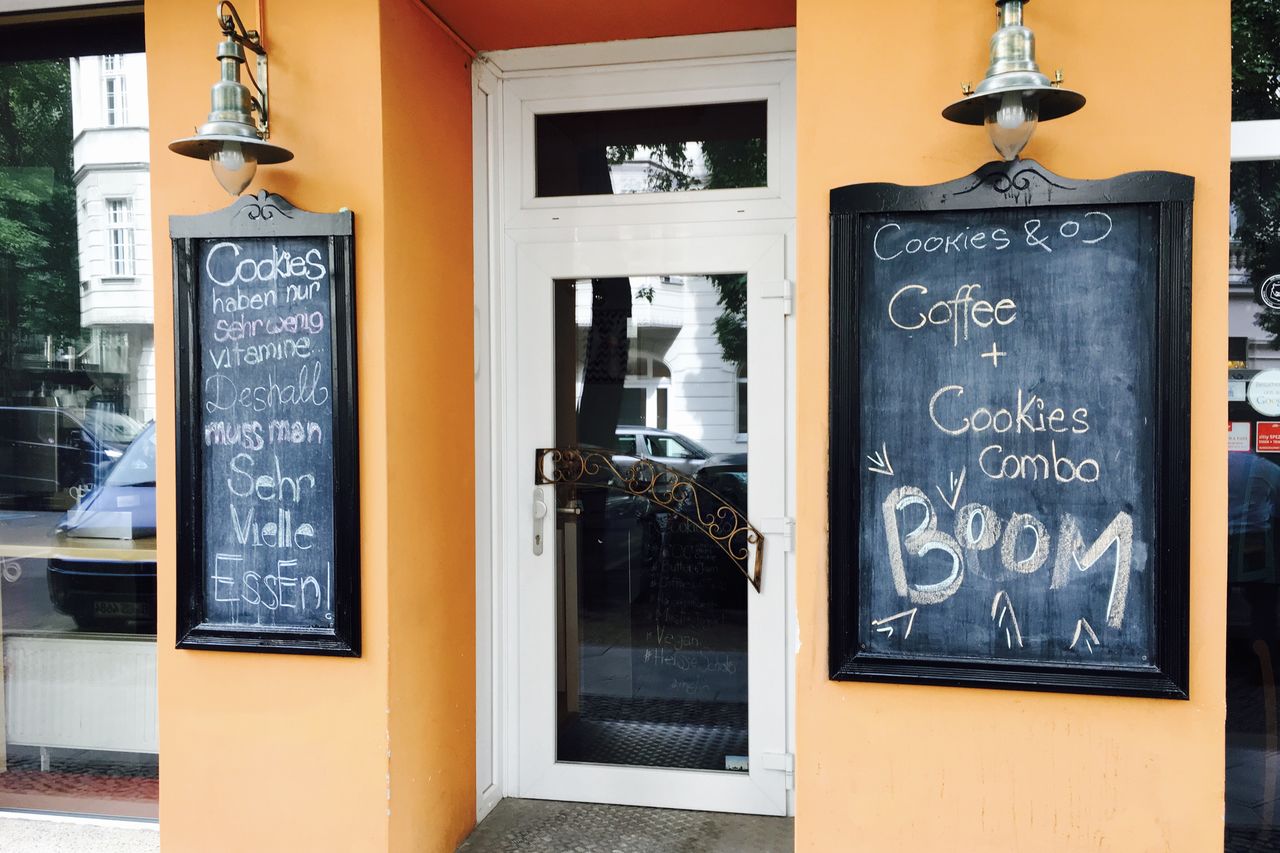 Cookies
haben nur
sehr wenig
vitamine...
Deshalb
muss man
Sehr
Vielle
EssEn!
Cookies & co
Coffee
+
Cookies
Combo
BOOM
Vegan